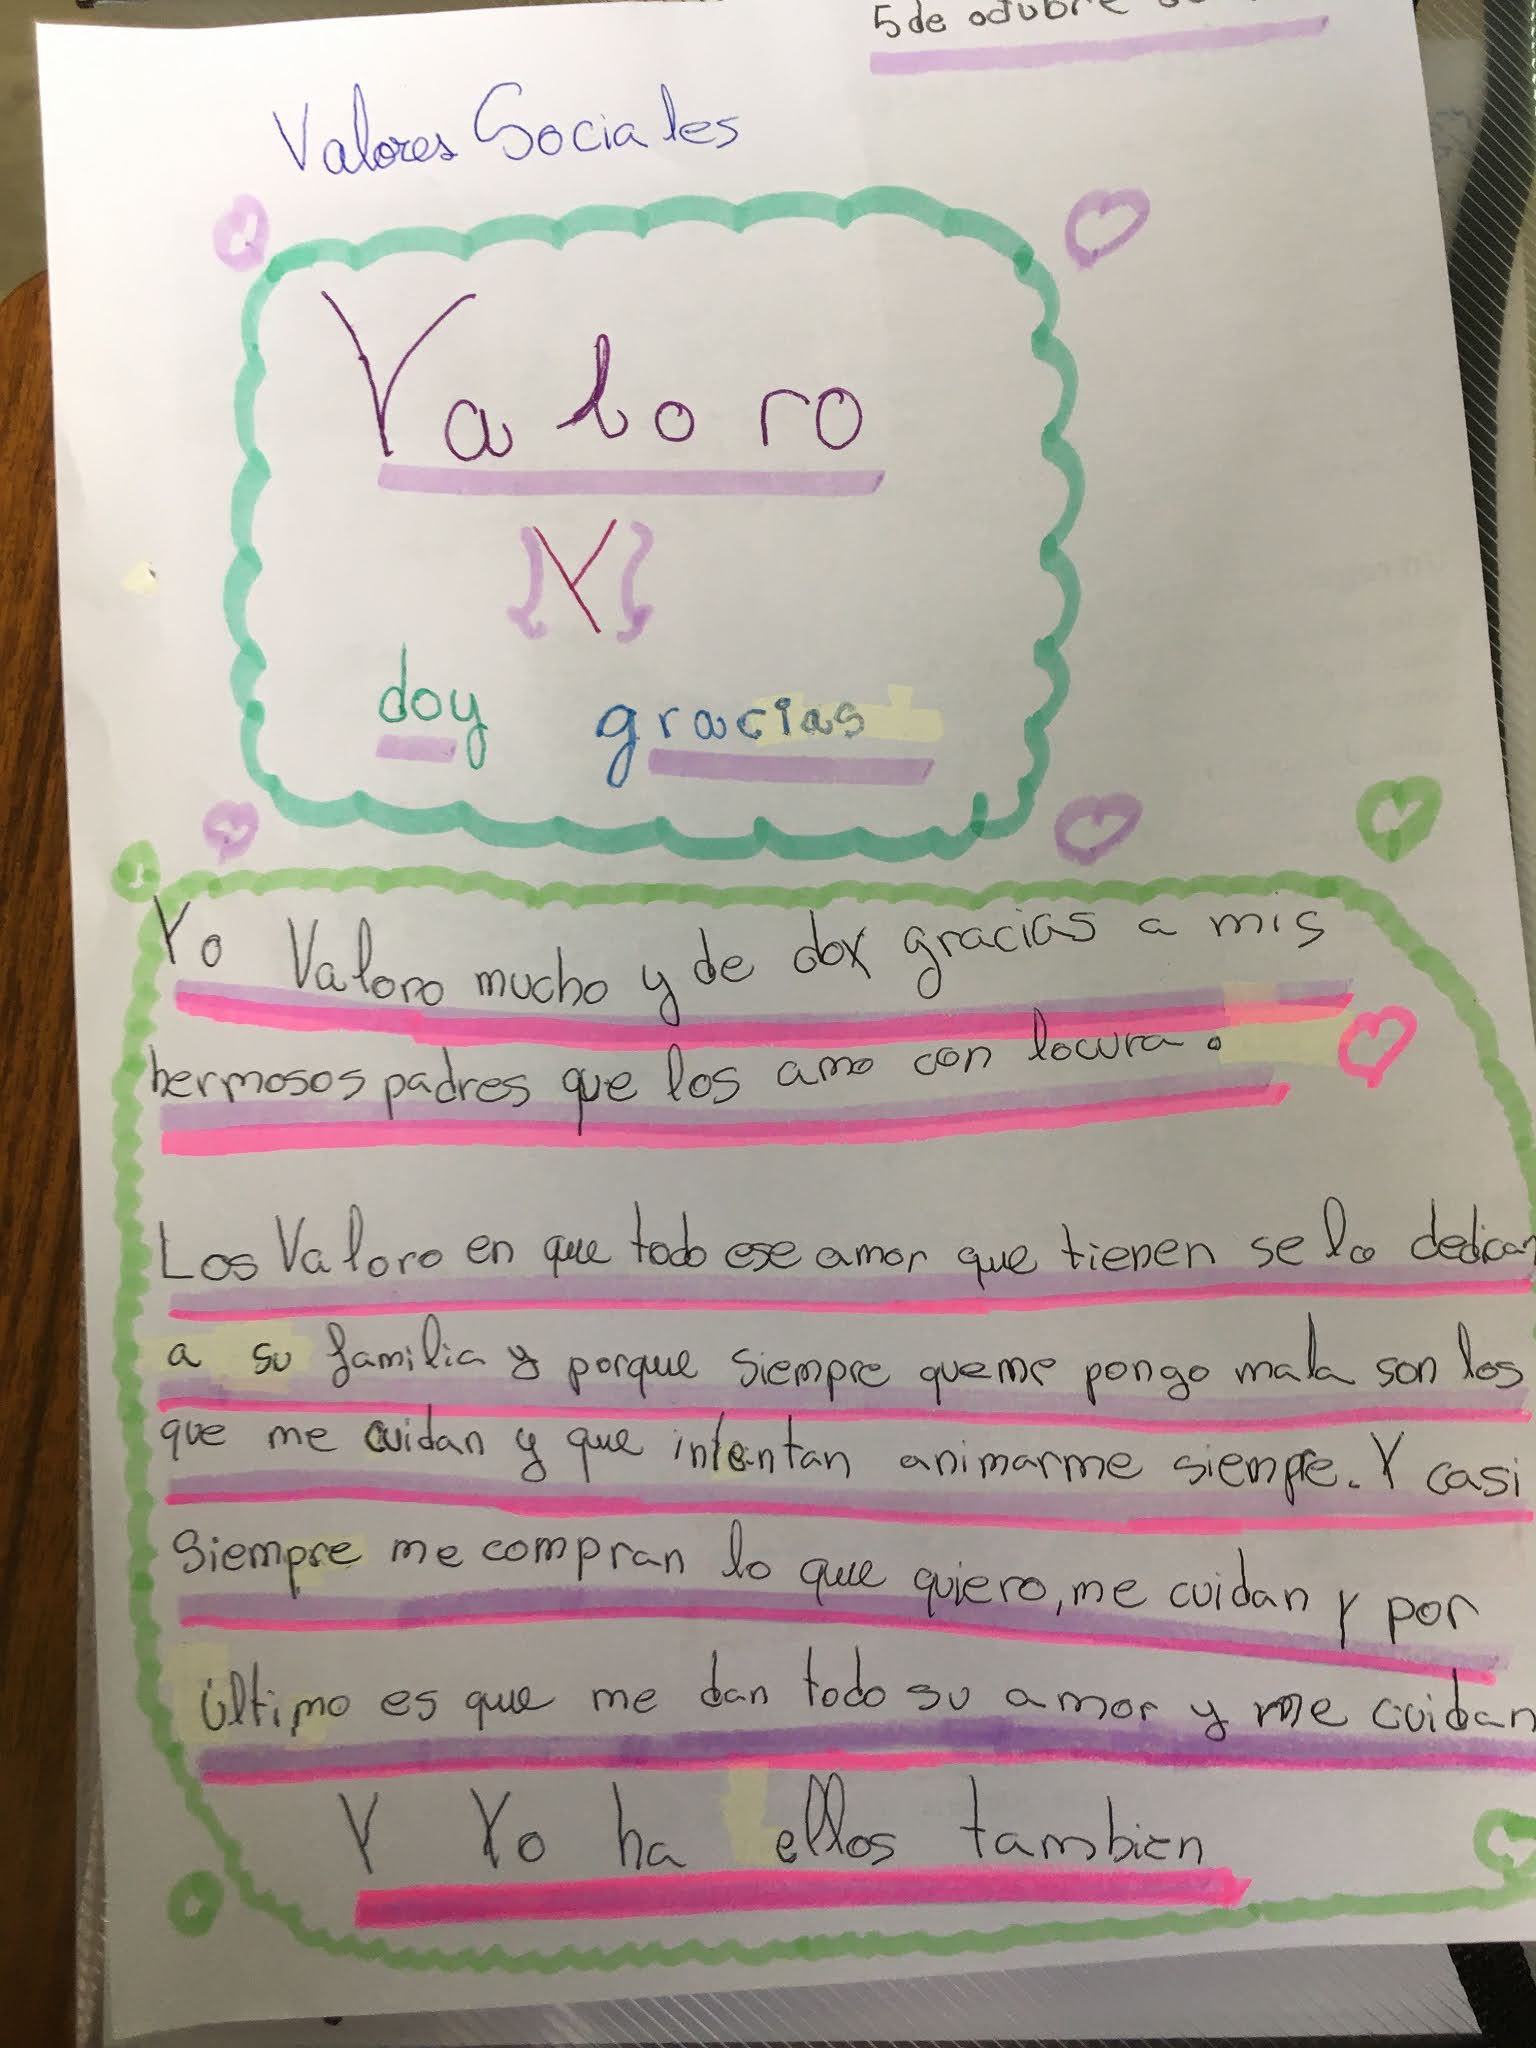 5 de octubre
Valores Sociales
Valoro
}Y{
doy gracias
Yo Valoro mucho y de doy gracias a mis
hermosos padres que los amo con locura.
Los Valoro en que todo ese amor que tienen se lo dedican
a su familia y porque siempre que me pongo mala son los
que me cuidan y que intentan animarme siempre. Y casi
siempre me compran lo que quiero, me cuidan y por
último es que me dan todo su amor y me cuidan
Y Yo ha ellos tambien